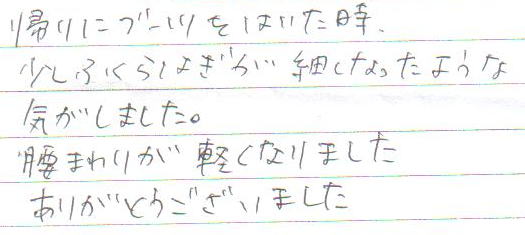 帰りにブーツをはいた時、
少しふくらはぎが細くなったような
気がしました。
腰まわりが軽くなりました
ありがとうございました